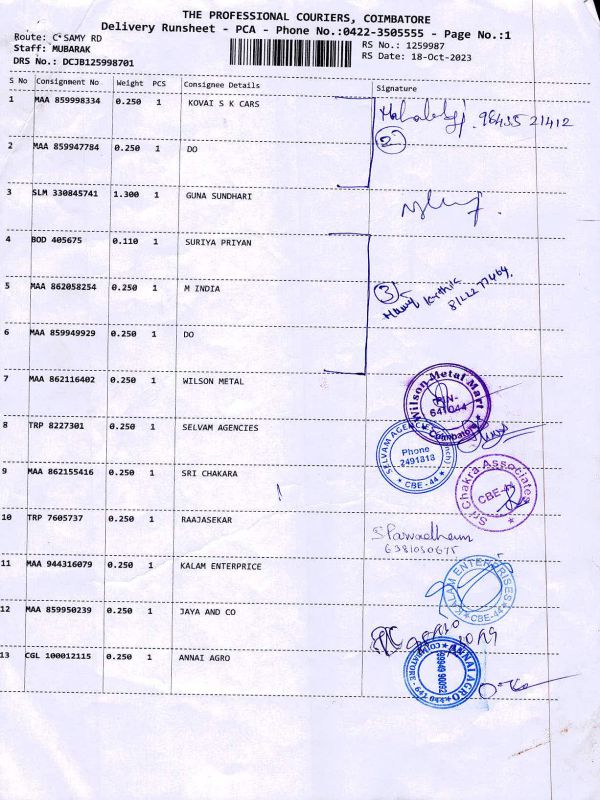 THE PROFESSIONAL COURIERS, COIMBATORE
Delivery Runsheet - PCA - Phone No.:0422-3505555 - Page No.:1
Route: C SAMY RD
Staff: MUBARAK
DRS No.: DCJB125998701
RS No.: 1259987
RS Date: 18-Oct-2023
S No Consignment No Weight PCS Consignee Details Signature
1 MAA 859998334 0.250 1 KOVAI S K CARS
96435 21412
2
2 MAA 859947784 0.250 1 DO
3 SLM 330845741 1.300 1 GUNA SUNDHARI
4 BOD 405675 0.110 1 SURIYA PRIYAN
5 MAA 862058254 0.250 1 M INDIA
3
6 MAA 859949929 0.250 1 DO
7 MAA 862116402 0.250 1 WILSON METAL
Wilson Metal Mart
PIN-
641044
Coimbatore
8 TRP 8227301 0.250 1 SELVAM AGENCIES
SELVAM AGENCIES
Phone
2491818
CBE-44
9 MAA 862155416 0.250 1 SRI CHAKARA
Sri Chakra Associates
CBE-44
10 TRP 7605737 0.250 1 RAAJASEKAR
6381050675
11 MAA 944316079 0.250 1 KALAM ENTERPRICE
KALAM ENTERPRISES
CBE-44
12 MAA 859950239 0.250 1 JAYA AND CO
13 CGL 100012115 0.250 1 ANNAI AGRO
ANNAI AGRO
COIMBATORE - 641 044